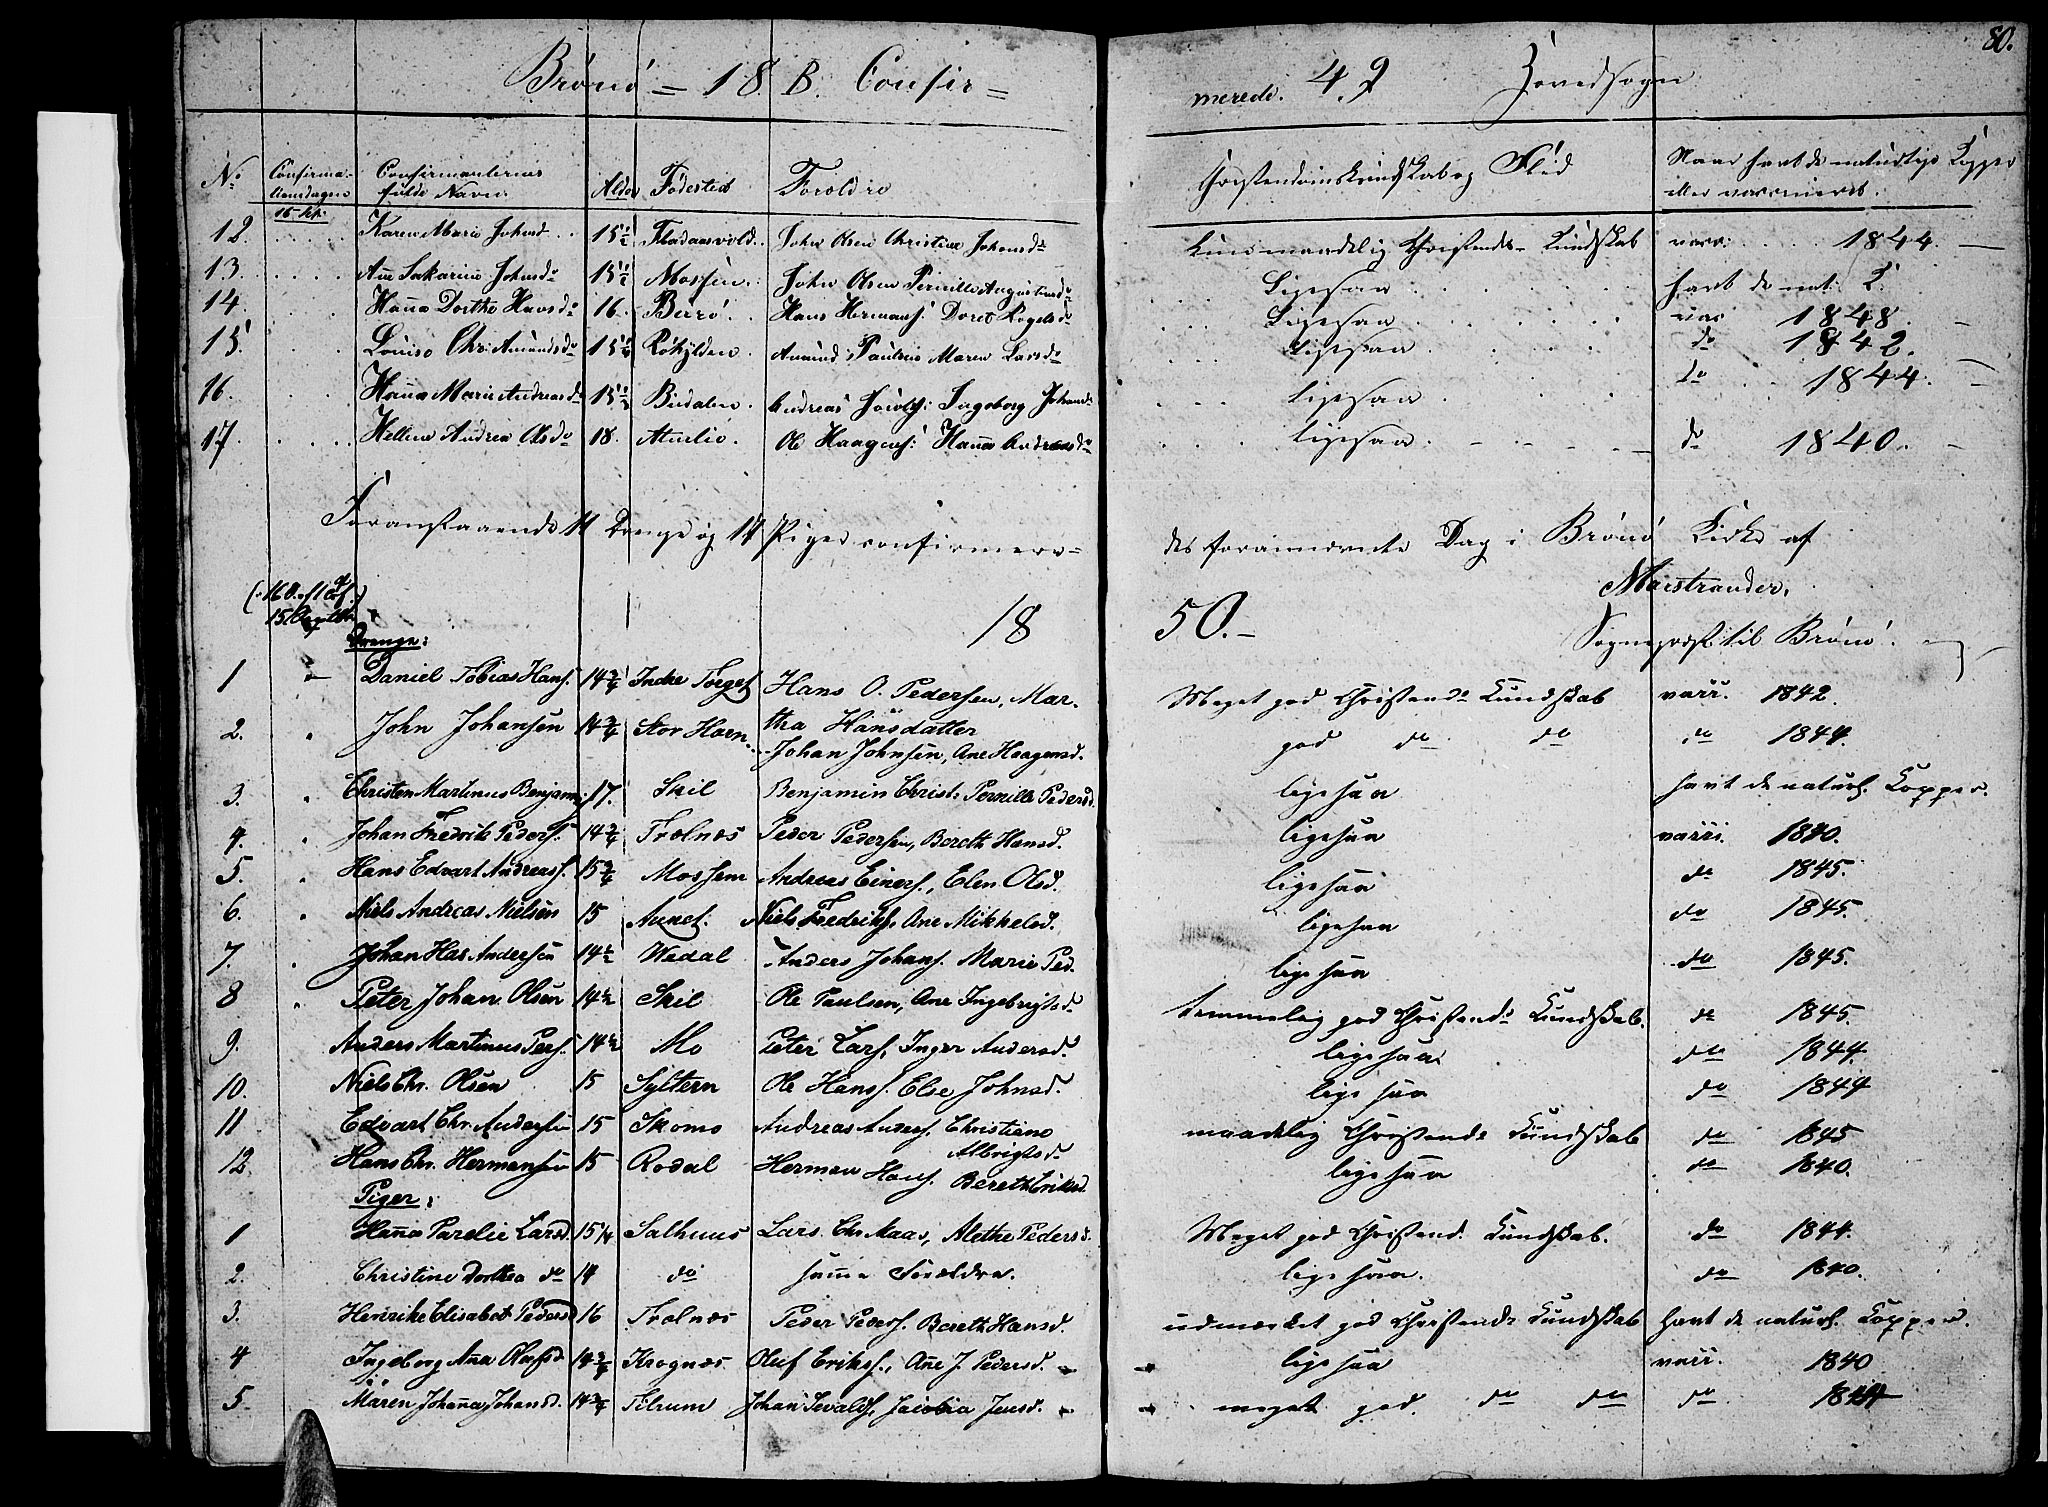 80.
Brönö = 18 B. Confir = merede. 49 Hovedsogn
No Confirmationsdagen Confirmanternes fulde Navn. Alder Fødested Forældre Christendomskundskab og Flid Naar havt de naturlige Kopper eller vaccineret.
12. Karen Marie Johnsd 15½ John Olsen Christine Johansdr maadelig Christends Kundskab vacc: 1844.
13. Ane Johnsdr 15½ Mossen. John Olsen Pernille Augustinsdr Ligesaa havt de nat: K.
14. Hanna Dorthe Hansdr 16. Hans Hermans: Doret Ligesaa vac 1848.
15. Lovise Chr: Amundsdr 15½ Amund Paulsen Maren Larsdr Ligesaa do 1842.
16. Hanna Marie Andreasdr 15½ Andreas Jacobs: Ingeborg Johansdr Ligesaa do 1844.
17. Olsdr 18. Ole Haagens: Hanna Andreasdr Ligesaa do 1840.
Foranstaaende 11 Drenge og 17 Piger confirmere= des forannævnte Dag i Brönö Kirke af
Marstrander,
Sognepræst til Brönö.
18 50.
Drenge:
1 Daniel Tobias Hans. 14¾ Indre Torget Hans O. Pedersen, Mar-tha Hansdatter Meget god Christends Kundskab vacc. 1842.
2. John Johansen 14¾ Stor Horn Johan Johnsen, Ane Haagensd. god do do do 1844.
3. Christen Martinus Benjam: 17. Skil Benjamin Christ: Pernille Pedersd. ligesaa havt de naturl. Kopper.
4. Johan Fredrik Peders. 14¾ Trælnæs Peder Pedersen, Bereth Hansd. ligesaa vacci. 1840.
5. Hans Edvart Andreass. 15¾ Mossem Andreas Einers., Elen Olsd. ligesaa do 1845.
6. Niels Andreas Nielsen 15 Aunet. Niels Fredriks. Ane Mikkelsd. ligesaa do 1845.
7. Johan Has Andersen 14½ Wedal Anders Johans. Marie Ped. ligesaa do 1845.
8 Peter Johan Olsen 14½ Skil Ole Paulsen, Ane Ingebrigtsd. temmelig god Christends Kundskab. do 1845.
9. Anders Martinus Pers. 14½ Mo Peter Lars, Inger Andersd. ligesaa do 1844.
10. Niels Chr. Olsen 15 Syltern Ole Hanss. Else Johnsd. ligesaa do 1844
11 Edvart Chr. Andersen 15 Skomo Andreas Anders. Christiane Albrigtsd. maadelig Christends Kundskab do 1845
12. Hans Chr. Hermansen 15 Rodal Herman Hans. Bereth Eriksd. ligesaa do 1840.
Piger:
1 Hanna Parelie Larsd. 15¼ Salhuus Lars Chr Maas, Alethe Pedersd. Meget god Christend. Kundskab. do 1844.
2. Christine Dorthea do 14 do samme Forældre. ligesaa. do 1840.
3. Henrike Elisabet Pedersd 16 Trælnæs Peder Peders. Bereth Hansd. udmærket god Christends Kundskab havt de naturl. Kopper.
4 Ingeborg Anna Olufsd 14¾ Krognæs Oluf Eriks., Ane J. Pedersd. ligesaa vacc. 1840
5 Maren Johanna Johansd. 14¾ Tilrum Johan Sevalds, Jacobia Jensd. meget god do do do 1844